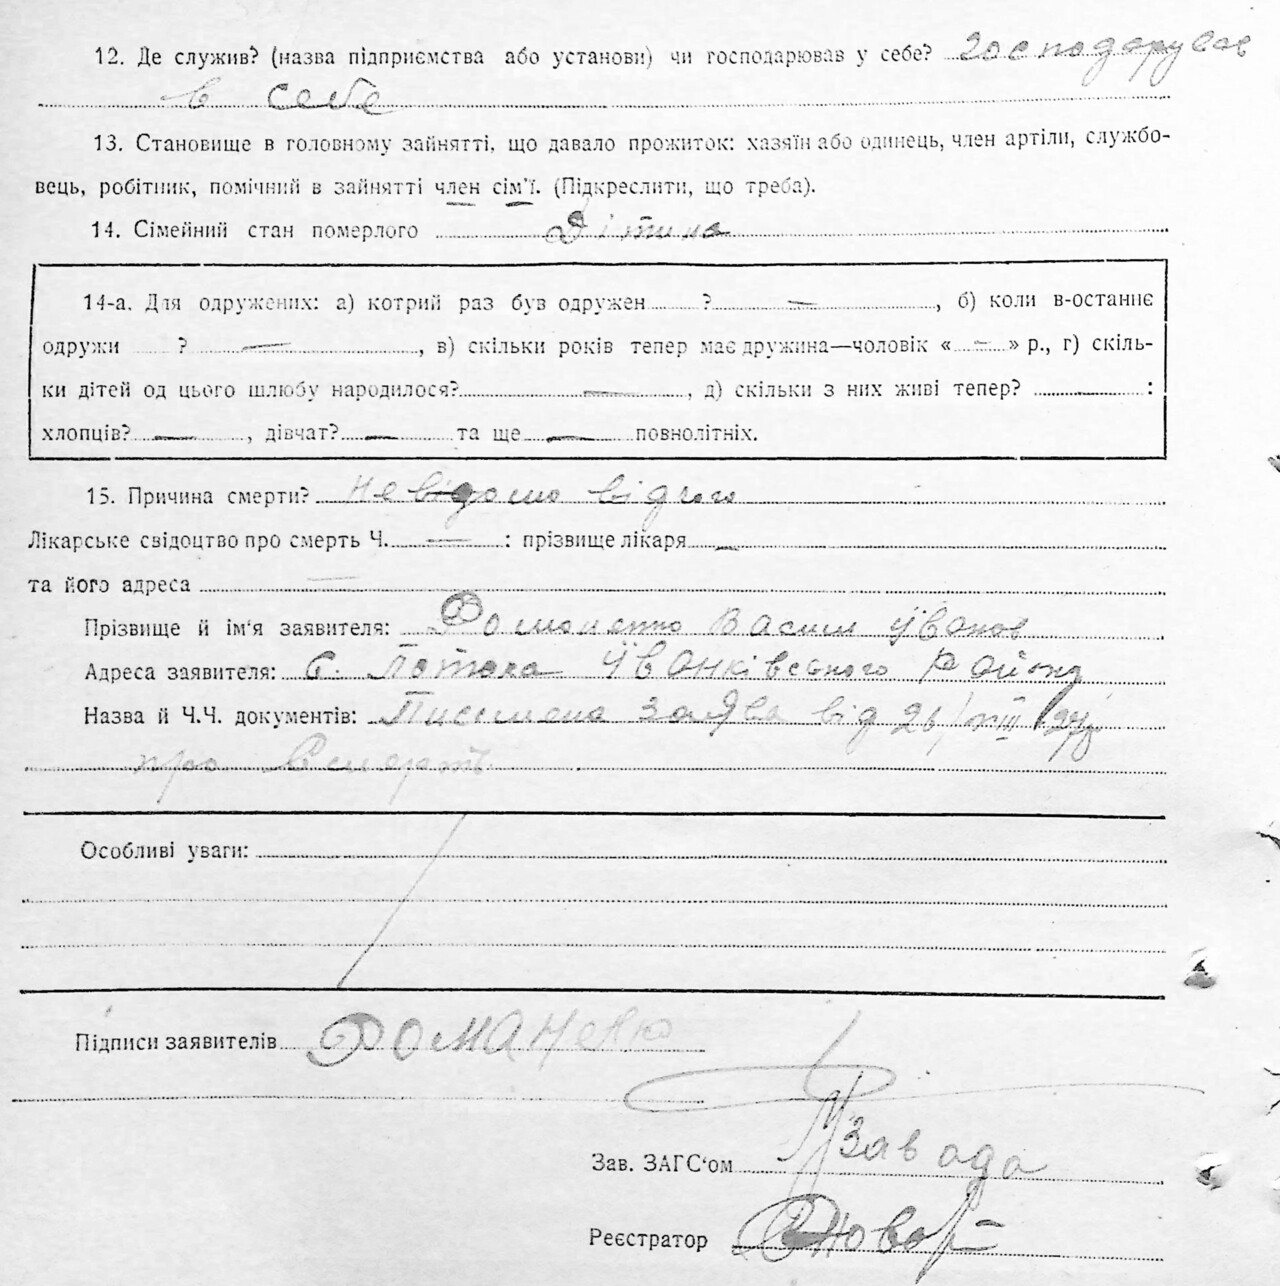 12. Де служив? (назва підприємства або установи) чи господарював у себе? господарував
в себе
13. Становище в головному зайнятті, що давало прожиток: хазяїн або одинець, член артіли, службо-
вець, робітник, помічний в зайнятті член сім'ї. (Підкреслити, що треба).
14. Сімейний стан померлого Дітина
14-а. Для одружених: а) котрий раз був одружен ? —, б) коли в-останнє
одружи ? —, в) скільки років тепер має дружина—чоловік « – » р., г) скіль-
ки дітей од цього шлюбу народилося? —, д) скільки з них живі тепер? — :
хлопців? —, дівчат? — та ще — повнолітніх.
15. Причина смерти? Невідомо від чого
Лікарське свідоцтво про смерть Ч. — : прізвище лікаря —
та його адреса —
Прізвище й ім'я заявителя: Романенко Васил Іванов
Адреса заявителя: С. Потока Іванківського Району
Назва й Ч.Ч. документів: Письмена заява від 26/VIII
про Смерть
Особливі уваги:
Підписи заявителів Романенко
Зав. ЗАГС'ом Завада
Реєстратор